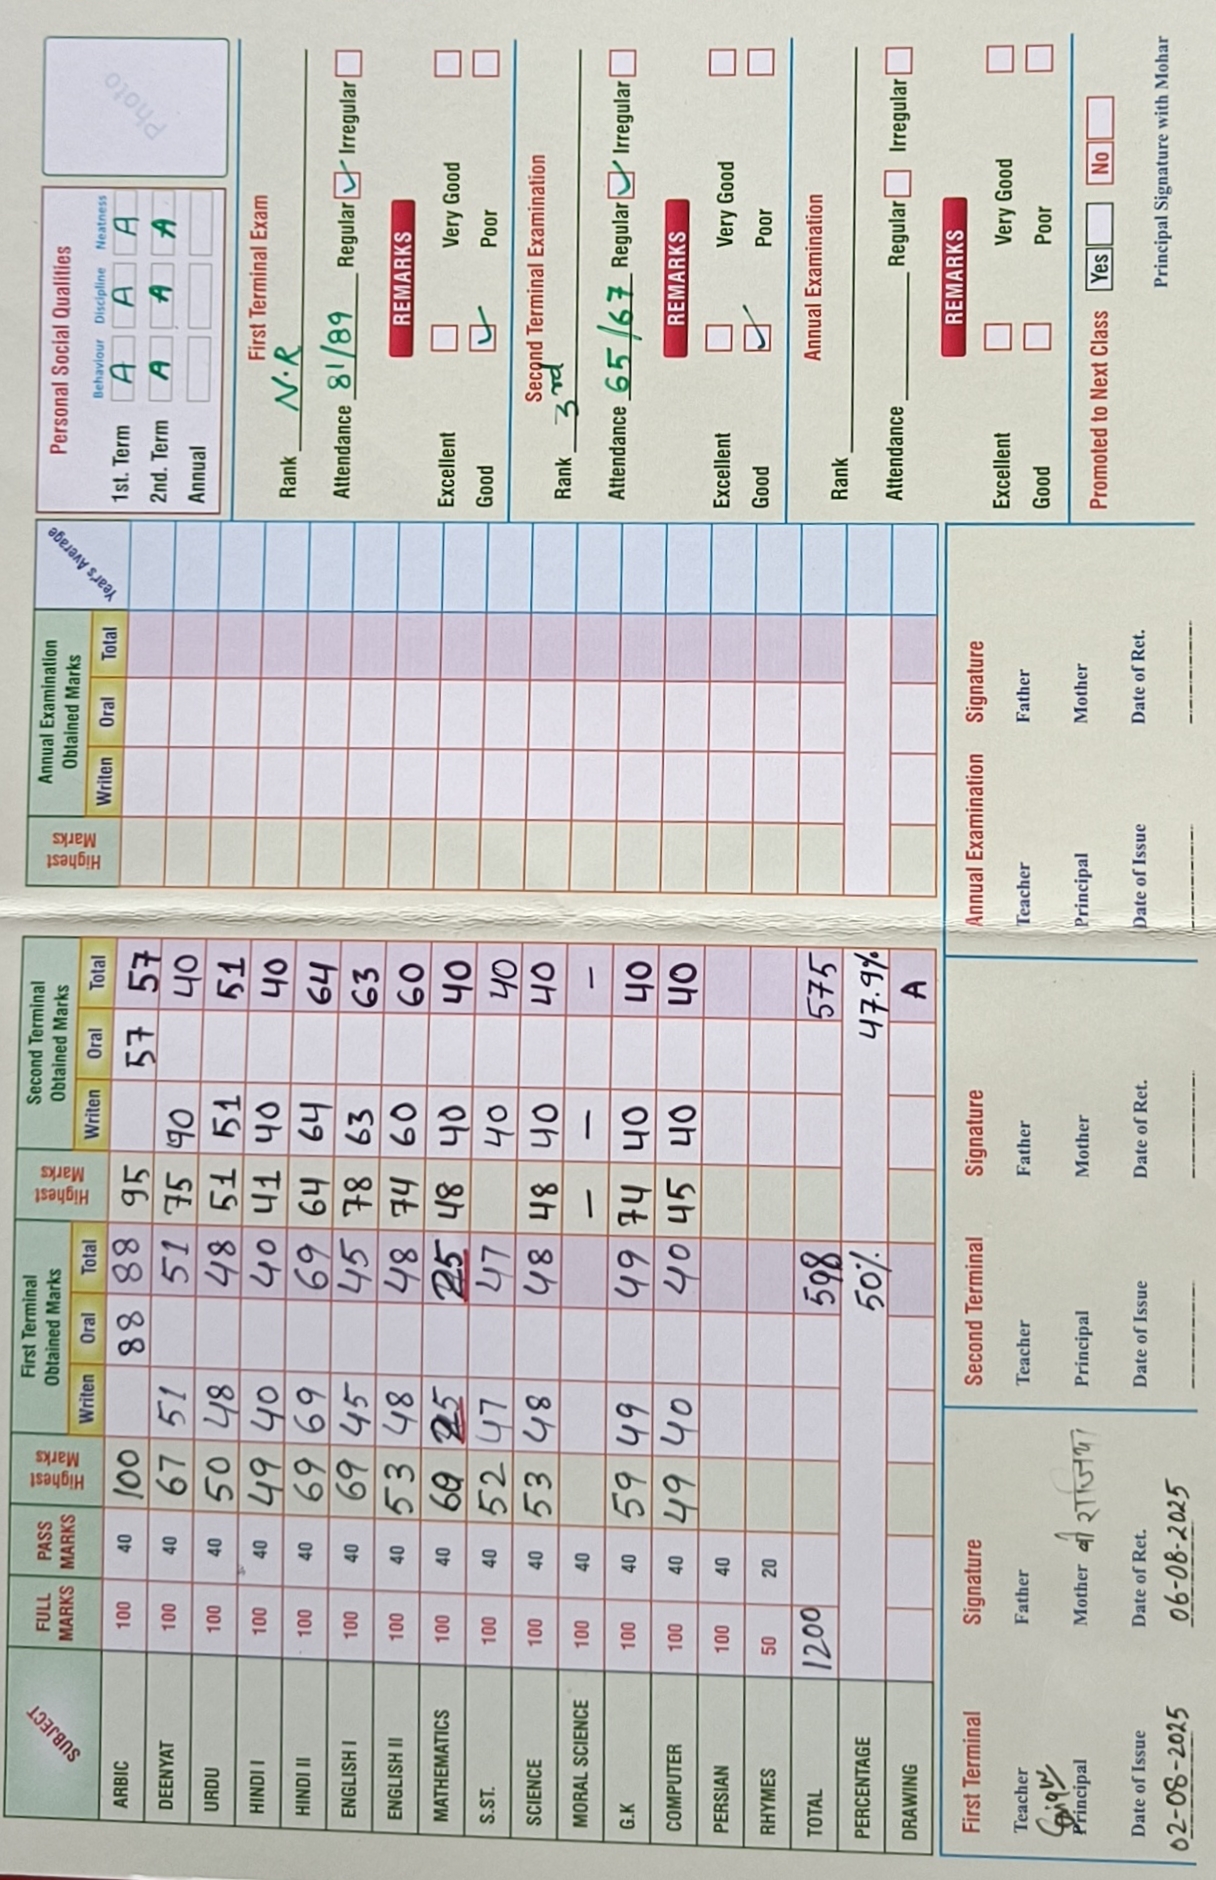 SUBJECT FULL MARKS PASS MARKS Highest Marks First Terminal Obtained Marks Writen Oral Total Highest Marks Second Terminal Obtained Marks Writen Oral Total Highest Marks Annual Examination Obtained Marks Writen Oral Total Year's Average
ARBIC 100 40 100 88 88 95 57 57
DEENYAT 100 40 67 51 51 75 40 40
URDU 100 40 50 48 48 51 51 51
HINDI I 100 40 49 40 40 41 40 40
HINDI II 100 40 69 69 69 64 64 64
ENGLISH I 100 40 69 45 45 78 63 63
ENGLISH II 100 40 53 48 48 74 60 60
MATHEMATICS 100 40 69 25 25 48 40 40
S.ST. 100 40 52 47 47 40 40
SCIENCE 100 40 53 48 48 48 40 40
MORAL SCIENCE 100 40 - - -
G.K 100 40 59 49 49 74 40 40
COMPUTER 100 40 49 40 40 45 40 40
PERSIAN 100 40
RHYMES 50 20
TOTAL 1200 598 575
PERCENTAGE 50% 47.9%
DRAWING A
First Terminal Signature
Teacher Father
Principal Mother
Date of Issue Date of Ret.
02-08-2025 06-08-2025
Second Terminal Signature
Teacher Father
Principal Mother
Date of Issue Date of Ret.
Annual Examination Signature
Teacher Father
Principal Mother
Date of Issue Date of Ret.
Personal Social Qualities
Behaviour Discipline Neatness
1st. Term A A A
2nd. Term A A A
Annual
Photo
First Terminal Exam
Rank N.R
Attendance 81/89 Regular Irregular
REMARKS
Excellent Very Good
Good Poor
Second Terminal Examination
Rank 3rd
Attendance 65/67 Regular Irregular
REMARKS
Excellent Very Good
Good Poor
Annual Examination
Rank
Attendance Regular Irregular
REMARKS
Excellent Very Good
Good Poor
Promoted to Next Class Yes No
Principal Signature with Mohar